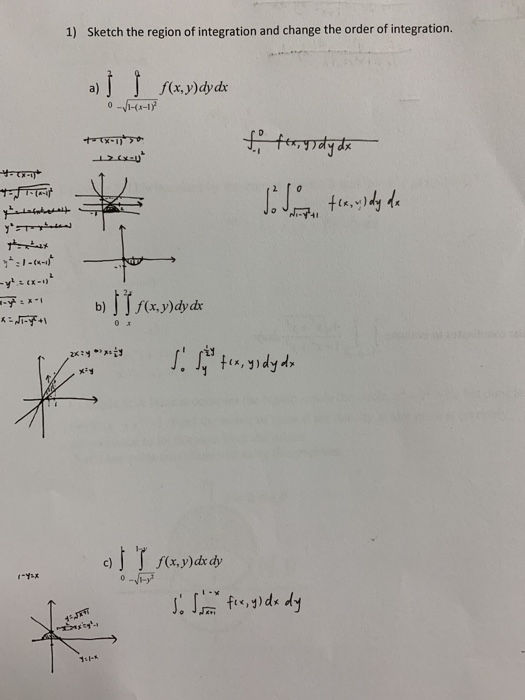 1) Sketch the region of integration and change the order of integration.
a) ∫₀² ∫_{-√(1-(x-1)²)}^0 f(x,y)dydx
1-(x-1)²>0
1>(x-1)²
∫_{-1}^0 f(x,y)dydx
y=(x-1)²
y=√1-(x-1)²
∫₀² ∫_{√1-y²+1}^0 f(x,y)dy dx
y²=1-(x-1)²
-y²=(x-1)²
√1-y²=x-1
x=√1-y²+1
b) ∫₀¹ ∫ₓ^{2x} f(x,y)dydx
2x=y => x=½y
x=y
∫₀¹ ∫_y^{½y} f(x,y)dydx
c) ∫₀¹ ∫_{-√(1-y²)}^{1-y} f(x,y)dxdy
1-y=x
∫₀¹ ∫_{√x+1}^{1-x} f(x,y)dx dy
y=√x+1
y=1-x